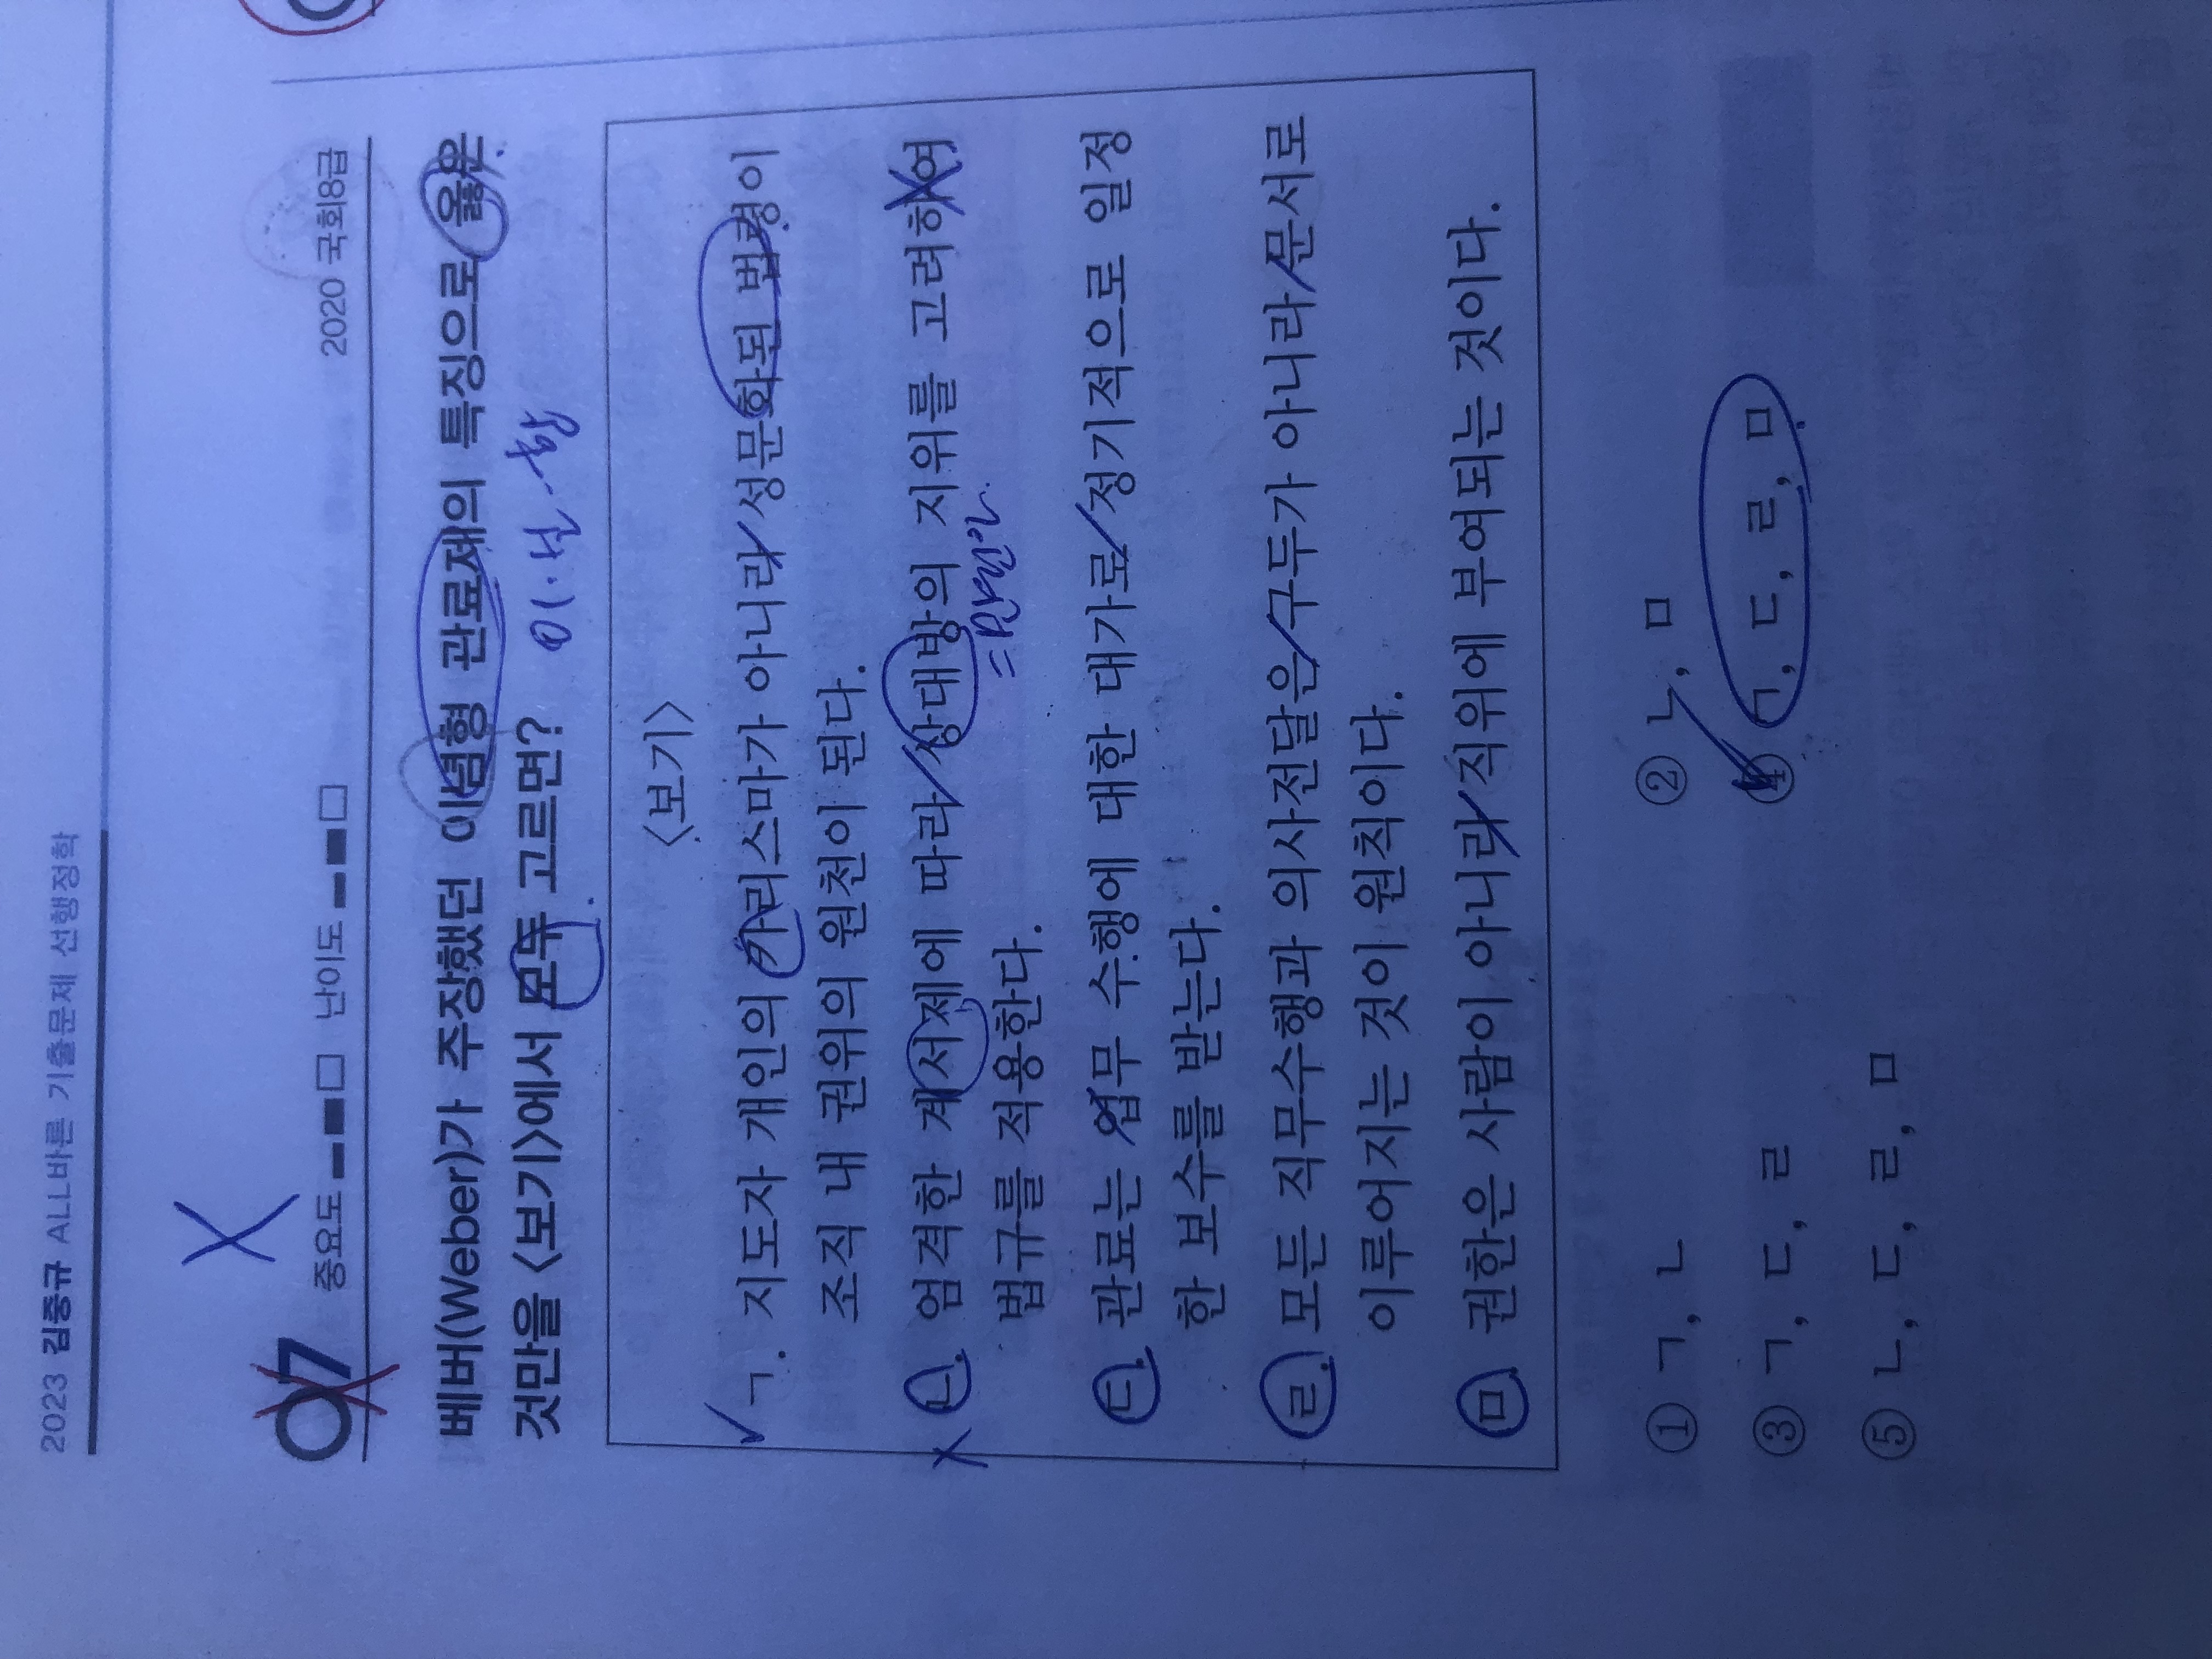 2023 김중규 ALL바른 기출문제 선행정학
07 중요도 난이도 2020 국회8급
베버(Weber)가 주장했던 이념형 관료제의 특징으로 옳은
것만을 <보기>에서 모두 고르면?
<보기>
ㄱ. 지도자 개인의 카리스마가 아니라 성문화된 법령이
조직 내 권위의 원천이 된다.
ㄴ. 엄격한 계서제에 따라 상대방의 지위를 고려하여
법규를 적용한다.
ㄷ. 관료는 업무 수행에 대한 대가로 정기적으로 일정
한 보수를 받는다.
ㄹ. 모든 직무수행과 의사전달은 구두가 아니라 문서로
이루어지는 것이 원칙이다.
ㅁ. 권한은 사람이 아니라 직위에 부여되는 것이다.
① ㄱ, ㄴ ② ㄴ, ㅁ
③ ㄱ, ㄷ, ㄹ ④ ㄱ, ㄷ, ㄹ, ㅁ
⑤ ㄴ, ㄷ, ㄹ, ㅁ